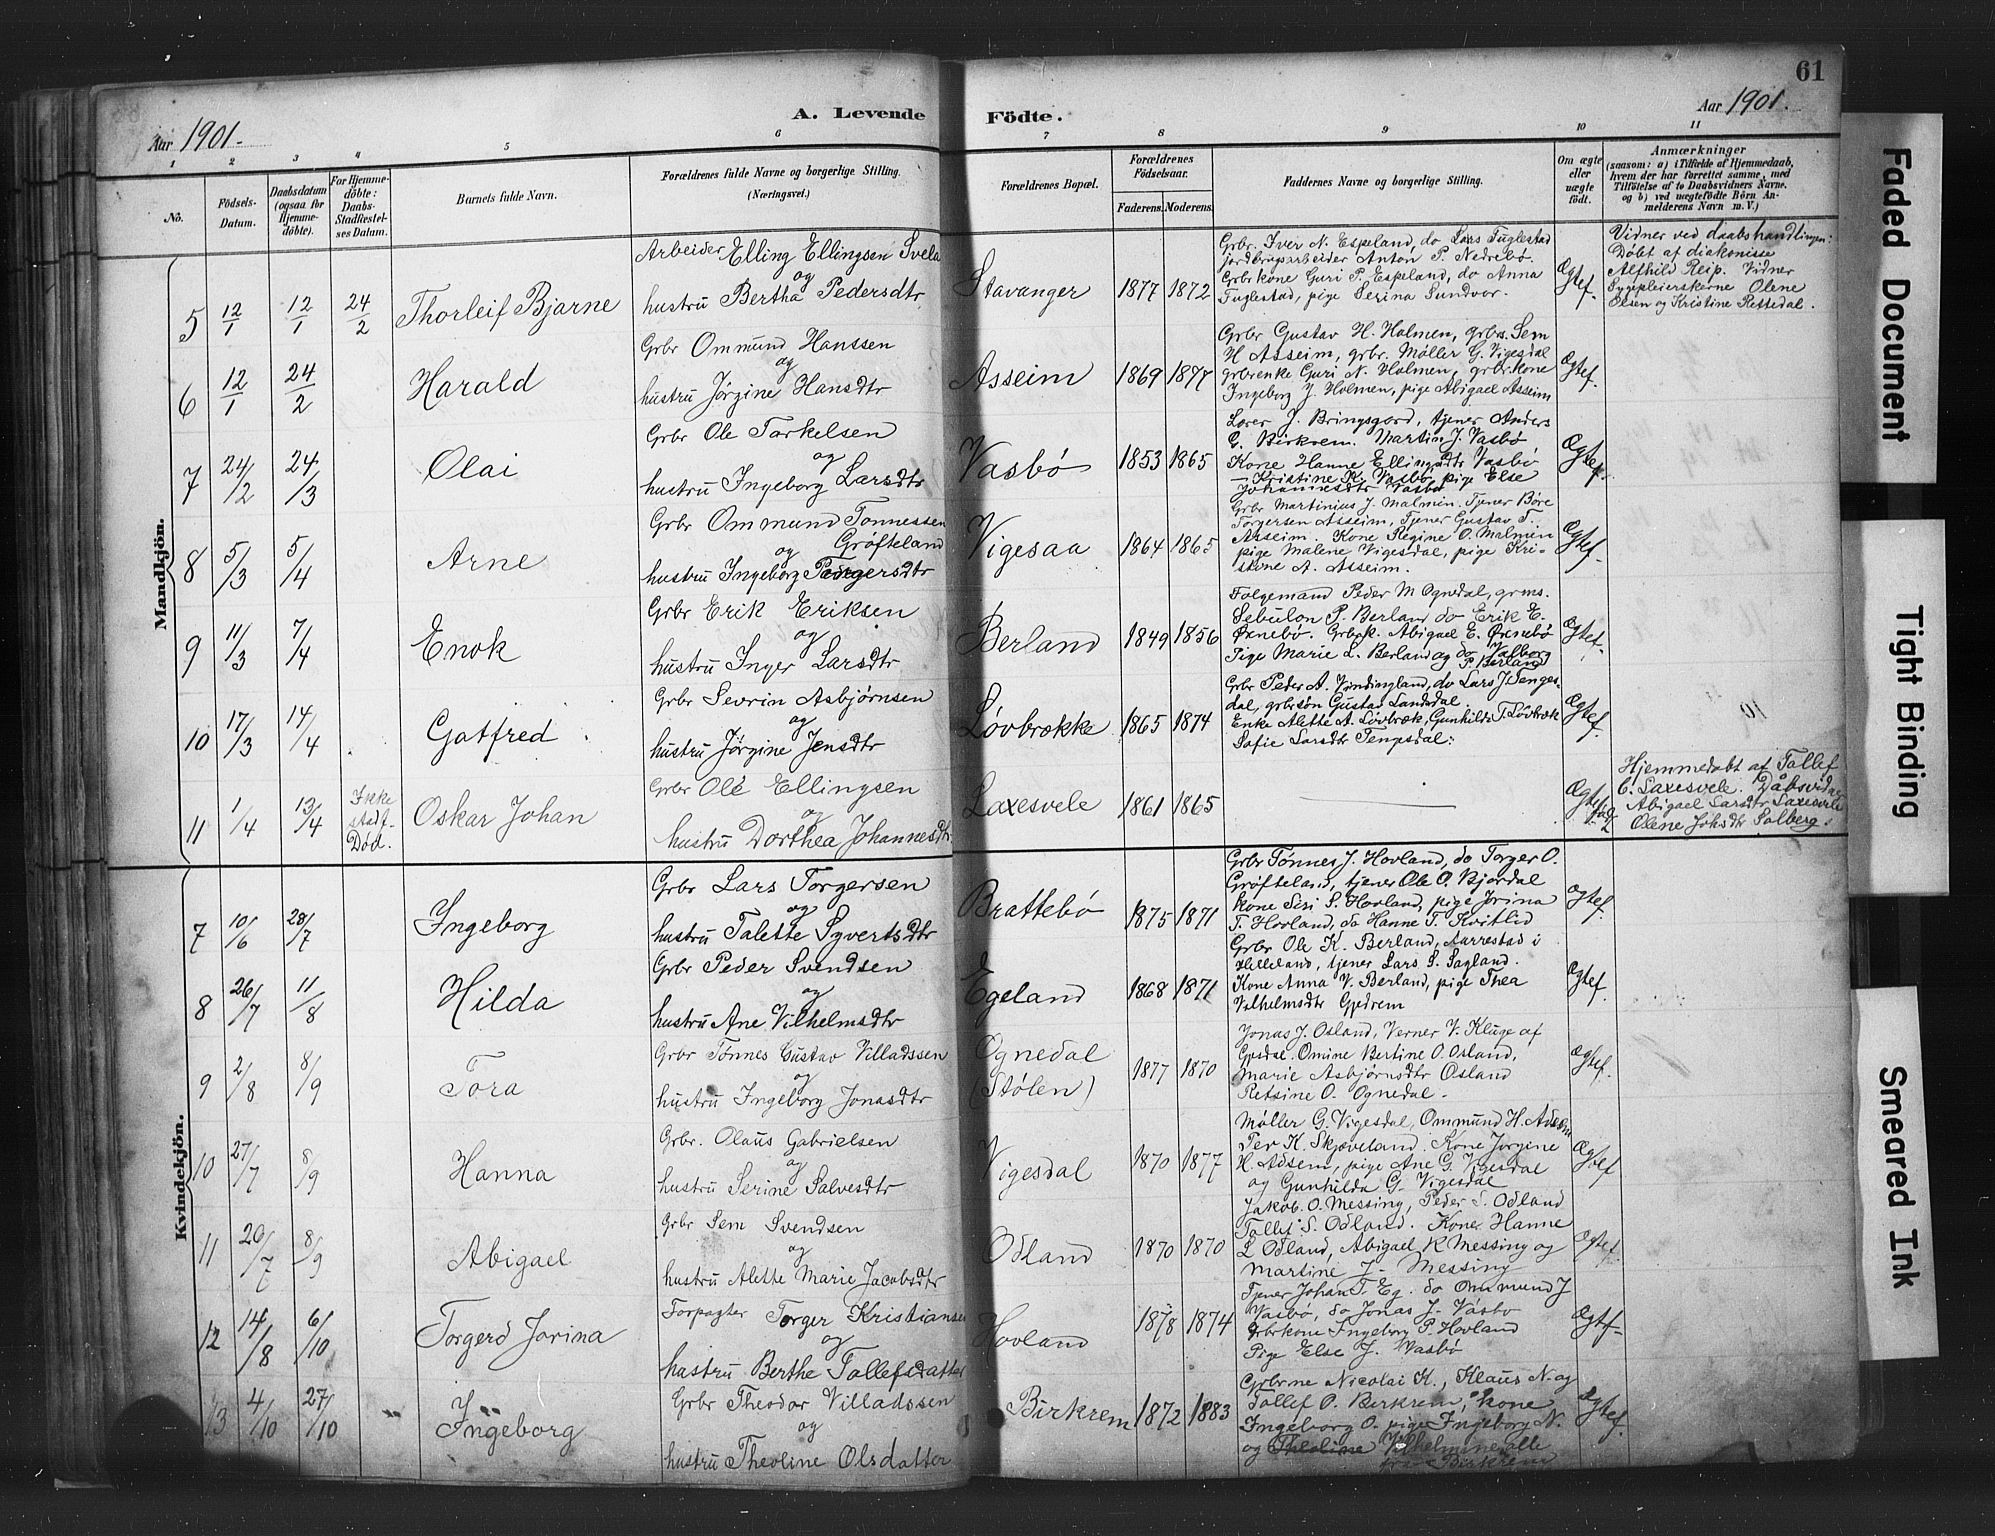 61
Aar 1901.
A. Levende
Födte.
Aar 1901.
1 2 3 4 5 6 7 8 9 10 11
No.
Födsels-
Datum.
Daabsdatum
(ogsaa for
Hjemme-
döbte).
For Hjemme-
döbte:
Daabs-
Stadfæstel-
ses Datum.
Barnets fulde Navn.
Forældrenes fulde Navne og borgerlige Stilling.
(Næringsvei.)
Forældrenes Bopæl.
Forældrenes
Födselsaar.
Faderens. Moderens.
Faddernes Navne og borgerlige Stilling.
Om ægte
eller
uægte
födt.
Anmærkninger
(saasom: a) i Tilfælde af Hjemmedaab,
hvem der har forrettet samme, med
Tilföielse af to Daabsvidners Navne.
og b) ved uægtefödte Börn An-
melderens Navn m. V.)
Mandkjön.
5 12/1 12/1 24/2 Thorleif Bjarne
Arbeider Elling Ellingsen Svela
og
hustru Bertha Pedersdtr
Stavanger 1877 1872
Grbr. Iver N. Espeland, do Lars Fuglestad
jordbrugsarbeider Anton P. Nedrebø.
Grbrkone Guri P. Espeland, do Anna
Fuglestad, pige Serina Sundvor.
Ægtef.
Vidner ved daabshandlingen:
Døbt af diakonisse
Alfhild Reip. Vidner
Sygepleierskerne Olene
Olsen og Kristine Rettedal.
6 12/1 24/2 Harald
Grbr Ommund Hanssen
og
hustru Jørgine Hansdtr
Asseim 1869 1877
Grbr Gustav H. Holmen, grbrs. Sem
H Asseim, grbr. Møller G. Vigesdal
grbrenke Guri N. Holmen, grbrkone
Ingeborg J. Holmen, pige Abigael Asseim
Ægtef.
7 24/2 24/3 Olai
Grbr Ole Torkelsen
og
hustru Ingeborg Larsdtr
Vasbø 1853 1865
Lærer J. Bringsgord, tjener Anders
G. Birkrem. Martin J. Vasbø
Kone Hanne Ellingsdtr Vasbø
— Kristine K. Vasbø, pige Else
Johannesdtr Vasbø
Ægtef.
8 5/3 5/4 Arne
Grbr Ommund Tønnessen
Grøfteland
og
hustru Ingeborg Torgersdtr
Vigesaa 1864 1865
Grbr Martinius J. Malmin. Tjener Bore
Torgersen Asseim, Tjener Gustav T.
Asseim. Kone Regine O. Malmin
pige Malene Vigesdal, pige Kri-
stone A. Asseim.
Ægtef.
9 11/3 7/4 Enok
Grbr Erik Eriksen
og
hustru Inger Larsdtr
Berland 1849 1856
Følgemand Peder M Ognedal, grms.
Sebulon P. Berland do Erik E.
Øksnebø. Grbrk. Abigael E. Øksnebø
Pige Marie L. Berland og do Valborg
P. Berland
Ægtef.
10 17/3 14/4 Gotfred
Grbr Sevrin Asbjørnsen
og
hustru Jørgine Jensdtr
Løvbrække 1865 1874
Grbr Peder A. Vindingland, do Lars J. Tenges-
dal, grbrsøn Gustav Landsdal.
Enke Alette A. Løvbræk, Gunhilda T. Løvbræk
Sofie Larsdtr Tengsdal.
Ægtef.
11 1/4 13/4 Ikke
stadf-
Død.
Oskar Johan
Grbr Ole Ellingsen
og
hustru Dorthea Johannesdtr.
Laxesvele 1861 1865
Ægtef.
Hjemmedøbt af Tollef
C. Laxesvele. Dåbsvidne
Abigael Larsdtr Laxesvele
Olene Johsdtr Solberg.
Kvindekjön.
7 10/6 28/7 Ingeborg
Grbr Lars Torgersen
og
hustru Talette Syvertsdtr
Brattebø 1875 1871
Grbr Tønnes J. Hovland, do Torger O.
Grøfteland, tjener Ole O. Bjordal
kone Siri S. Hovland, pige Jorina
T. Hovland, do Hanne T. Kvitlid
Ægtef.
8 26/7 11/8 Hilda
Grbr Peder Svendsen
og
hustru Ane Vilhelmsdtr
Egeland 1868 1871
Grbr Ole K. Berland, Aarrestad i
Helleland, tjener Lars S. Sagland.
Kone Anna V. Berland, pige Thea
Vilhelmsdtr Gjedrem
Ægtef.
9 2/8 8/9 Tora
Grbr Tønnes Gustav Villadssen
og
hustru Ingeborg Jonasdtr
Ognedal
(Stølen) 1877 1870
Jonas J. Osland, Verner V. Kluge af
Omine Bertine O. Osland,
Marie Asbjørnsdtr Osland
Retsine O. Ognedal.
Ægtef.
10 27/7 8/9 Hanna
Grbr. Olaus Gabrielsen
og
hustru Serine Salvesdtr
Vigesdal 1870 1877
Møller G. Vigesdal, Ommund H. Adsem
Per K. Skjæveland. Kone Jørgine
H. Adsem, pige Ane G. Vigesdal
og Gunhilda G. Vigesdal
Ægtef.
11 20/7 8/9 Abigael
Grbr Sem Svendsen
og
hustru Alette Marie Jacobsdtr
Odland 1870 1870
Jakob. O. Messing, Peder S. Odland
Tollef S. Odland. Kone Hanne
L Odland, Abigael K Messing og
Martine J. Messing
Ægtef.
12 14/8 6/10 Torgerd Jorina
Forpagter Torger Kristiansen
og
hustru Berthe Tollefsdatter
Hovland 1878 1874
Tjener Johan T. Eg. do Ommund J
Vasbø, do Jonas J. Vasbø
Grbrkone Ingeborg P. Hovland
Pige Else J. Vasbø
Ægtf.
13 4/10 27/10 Ingeborg
Grbr Theodor Villadssen
og
hustru Theoline Olsdatter
Birkrem 1872 1883
Grbrne Nicolai K., Klaus N. og
Tollef O. Birkrem, kone
Ingeborg O. pige Ingeborg N.
og Theoline Vilhelmine alle
fra Birkrem
Ægtef.
Faded Document
Tight Binding
Smeared Ink